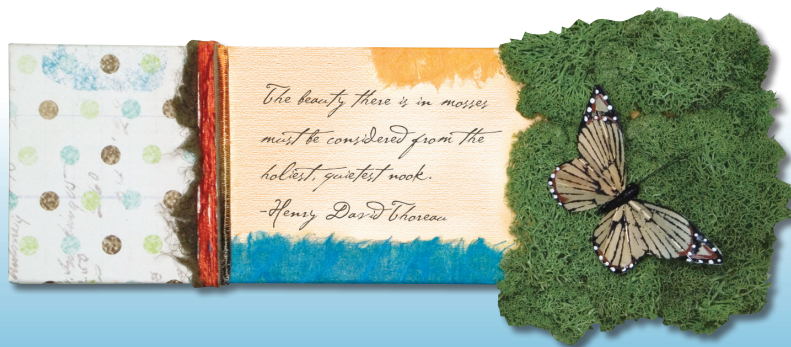 The beauty there is in mosses
must be considered from the
holiest, quietest nook.
-Henry David Thoreau